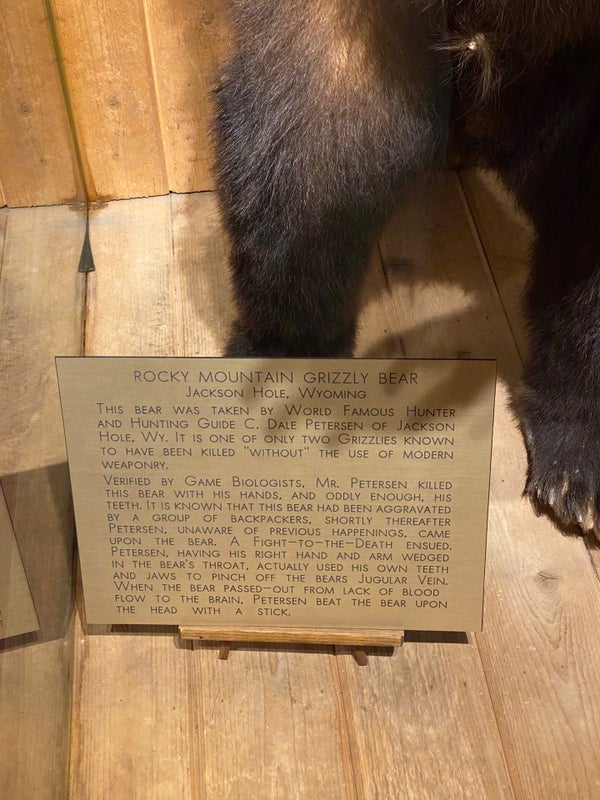 ROCKY MOUNTAIN GRIZZLY BEAR
JACKSON HOLE, WYOMING
THIS BEAR WAS TAKEN BY WORLD FAMOUS HUNTER
AND HUNTING GUIDE C. DALE PETERSEN OF JACKSON
HOLE, WY. IT IS ONE OF ONLY TWO GRIZZLIES KNOWN
TO HAVE BEEN KILLED "WITHOUT" THE USE OF MODERN
WEAPONRY.
VERIFIED BY GAME BIOLOGISTS, MR. PETERSEN KILLED
THIS BEAR WITH HIS HANDS, AND ODDLY ENOUGH, HIS
TEETH. IT IS KNOWN THAT THIS BEAR HAD BEEN AGGRAVATED
BY A GROUP OF BACKPACKERS, SHORTLY THEREAFTER
PETERSEN, UNAWARE OF PREVIOUS HAPPENINGS, CAME
UPON THE BEAR. A FIGHT-TO-THE-DEATH ENSUED.
PETERSEN, HAVING HIS RIGHT HAND AND ARM WEDGED
IN THE BEAR'S THROAT, ACTUALLY USED HIS OWN TEETH
AND JAWS TO PINCH OFF THE BEARS JUGULAR VEIN.
WHEN THE BEAR PASSED-OUT FROM LACK OF BLOOD
FLOW TO THE BRAIN, PETERSEN BEAT THE BEAR UPON
THE HEAD WITH A STICK.